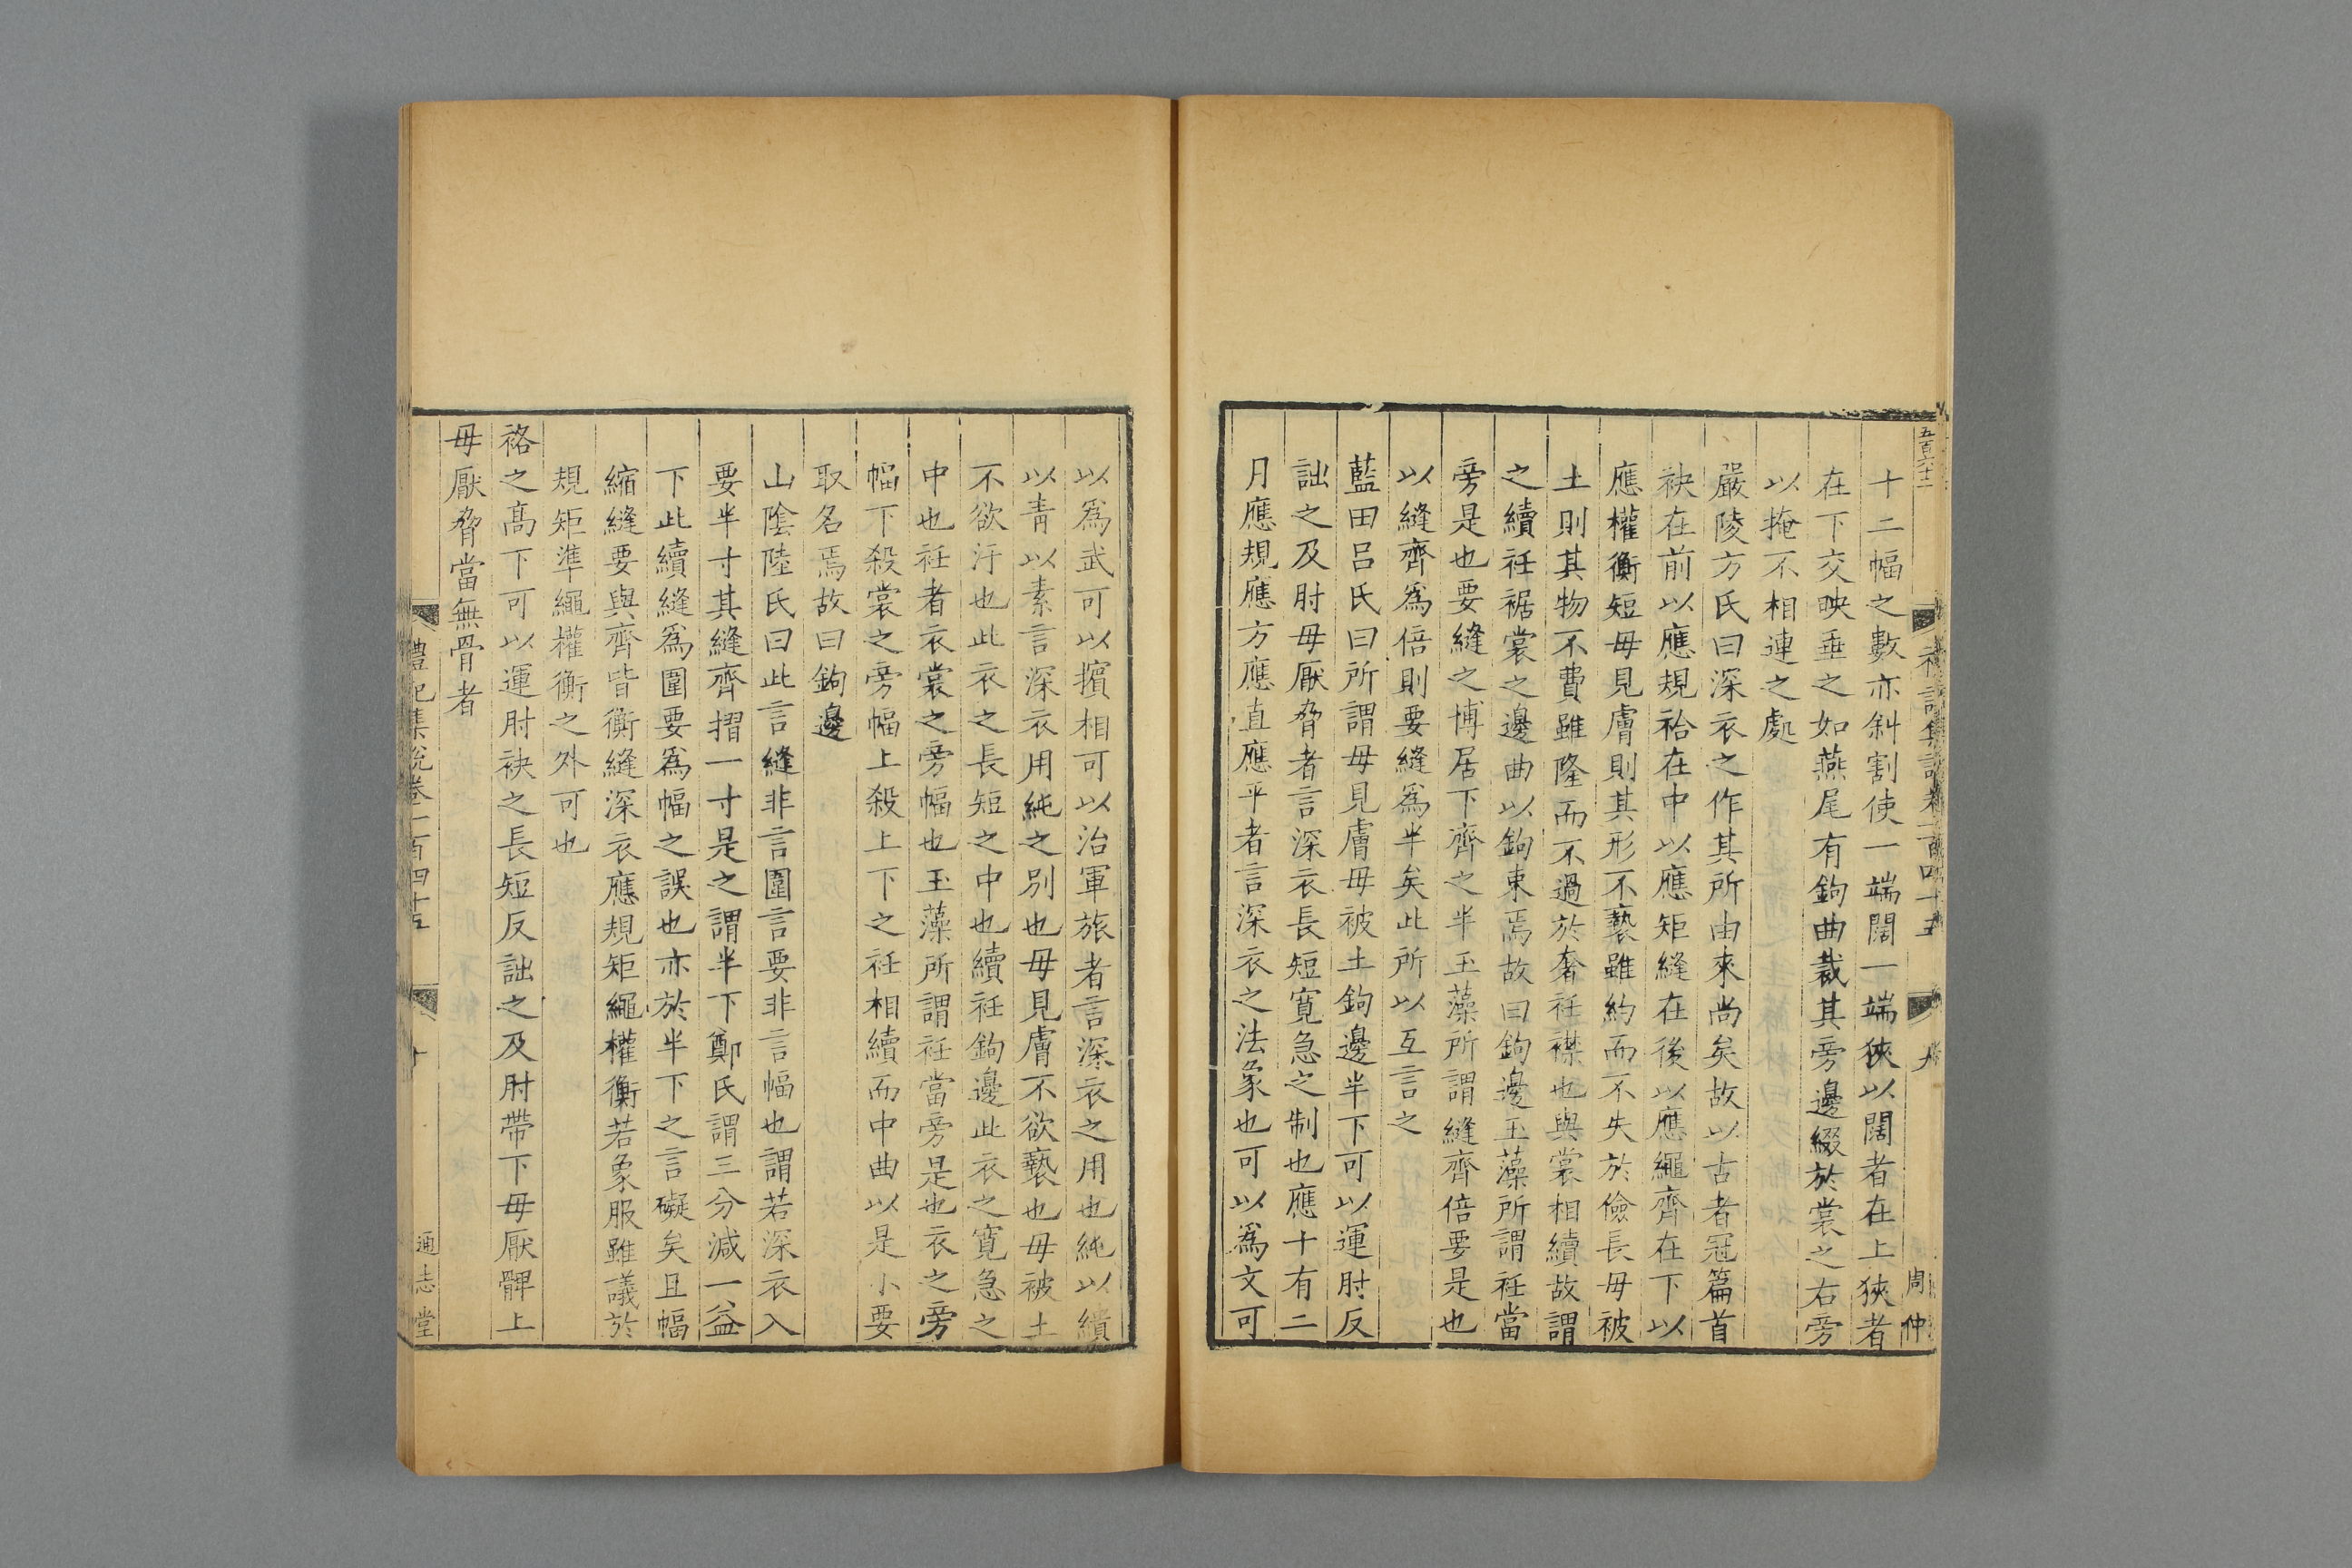 五百六十二
禮記集說卷一百四十五
九
周仲
十二幅之數亦斜割使一端闊一端狹以闊者在上狹者
在下交映垂之如燕尾有鉤曲裁其旁邊綴於裳之右旁
以掩不相連之處
嚴陵方氏曰深衣之作其所由來尚矣故以古者冠篇首
袂在前以應規袷在中以應矩縫在後以應繩齊在下以
應權衡短毋見膚則其形不褻雖約而不失於儉長毋被
土則其物不費雖隆而不過於奢衽襟也與裳相續故謂
之續衽裾裳之邊曲以鉤束焉故曰鉤邊玉藻所謂衽當
旁是也要縫之博居下齊之半玉藻所謂縫齊倍要是也
以縫齊爲倍則要縫爲半矣此所以互言之
藍田呂氏曰所謂毋見膚毋被土鉤邊半下可以運肘反
詘之及肘毋厭脅者言深衣長短寬急之制也應十有二
月應規應方應直應平者言深衣之法象也可以爲文可
以爲武可以擯相可以治軍旅者言深衣之用也純以繢
以青以素言深衣用純之別也毋見膚不欲褻也毋被土
不欲汙也此衣之長短之中也續衽鉤邊此衣之寬急之
中也衽者衣裳之旁幅也玉藻所謂衽當旁是也衣之旁
幅下殺裳之旁幅上殺上下之衽相續而中曲以是小要
取名焉故曰鉤邊
山陰陸氏曰此言縫非言圍言要非言幅也謂若深衣入
要半寸其縫齊摺一寸是之謂半下鄭氏謂三分減一益
下此續縫爲圍要爲幅之誤也亦於半下之言礙矣且幅
縮縫要與齊皆衡縫深衣應規矩繩權衡若象服雖議於
規矩準繩權衡之外可也
袼之高下可以運肘袂之長短反詘之及肘帶下毋厭髀上
毋厭脅當無骨者
禮記集說卷一百四十五
十
通志堂